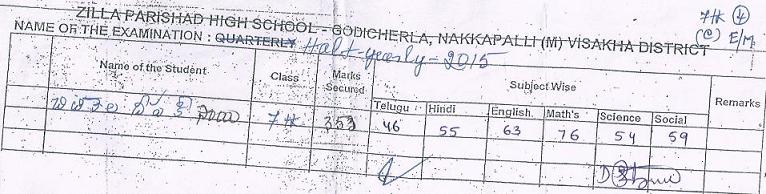 7th 4
ZILLA PARISHAD HIGH SCHOOL - GODICHERLA, NAKKAPALLI (M) VISAKHA DISTRICT
(C) E/M
NAME OF THE EXAMINATION : QUARTERLY Half-yearly-2015
Name of the Student Class Marks Secured Subject Wise Remarks
Telugu Hindi English Math's Science Social
7th 353 46 55 63 76 54 59